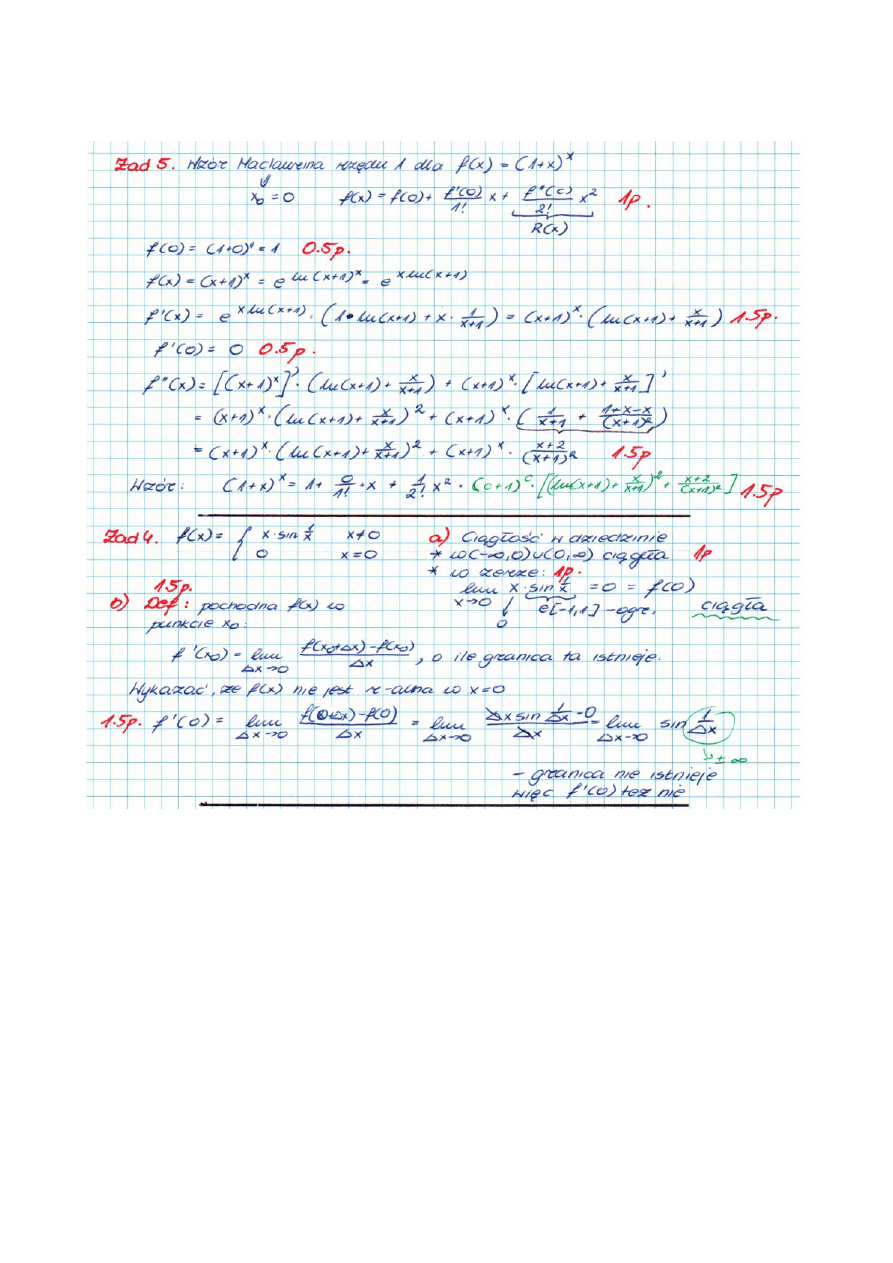 Zad 5. Wzór Maclaurina rzędu 1 dla f(x) = (1+x)^x
⇓
x₀ = 0 f(x) = f(0) + f'(0)/1! x + f''(c)/2! x² 1p.
R(x)
f(0) = (1+0)⁰ = 1 0.5p.
f(x) = (x+1)^x = e^{ln(x+1)^x} = e^{x ln(x+1)}
f'(x) = e^{x ln(x+1)} · (1·ln(x+1) + x · 1/(x+1)) = (x+1)^x · (ln(x+1) + x/(x+1)) 1.5p.
f'(0) = 0 0.5p.
f''(x) = [(x+1)^x]' · (ln(x+1) + x/(x+1)) + (x+1)^x · [ln(x+1) + x/(x+1)]'
= (x+1)^x · (ln(x+1) + x/(x+1))² + (x+1)^x · (1/(x+1) + (1+x-x)/(x+1)²)
= (x+1)^x · (ln(x+1) + x/(x+1))² + (x+1)^x · (x+2)/(x+1)² 1.5p
Wzór: (1+x)^x = 1 + 0/1! · x + 1/2! x² · (c+1)^c · [(ln(x+1) + x/(x+1))² + (x+2)/(x+1)²] 1.5p
Zad 4. f(x) = { x · sin 1/x x≠0
0 x=0
a) Ciągłość w dziedzinie
* w (-∞,0)∪(0,∞) ciągła 1p
* w zerze: 1p.
lim x→0 x · sin 1/x = 0 = f(0)
0 ∈[-1,1] - ogr. ciągła
1.5p.
b) Def: pochodna f(x) w
punkcie x₀:
f'(x₀) = lim Δx→0 (f(x₀+Δx) - f(x₀))/Δx, o ile granica ta istnieje.
Wykazać, że f(x) nie jest r-alna w x=0
1.5p. f'(0) = lim Δx→0 (f(0+Δx) - f(0))/Δx = lim Δx→0 (Δx sin 1/Δx - 0)/Δx = lim Δx→0 sin 1/Δx
↳ ± ∞
- granica nie istnieje
więc f'(0) też nie